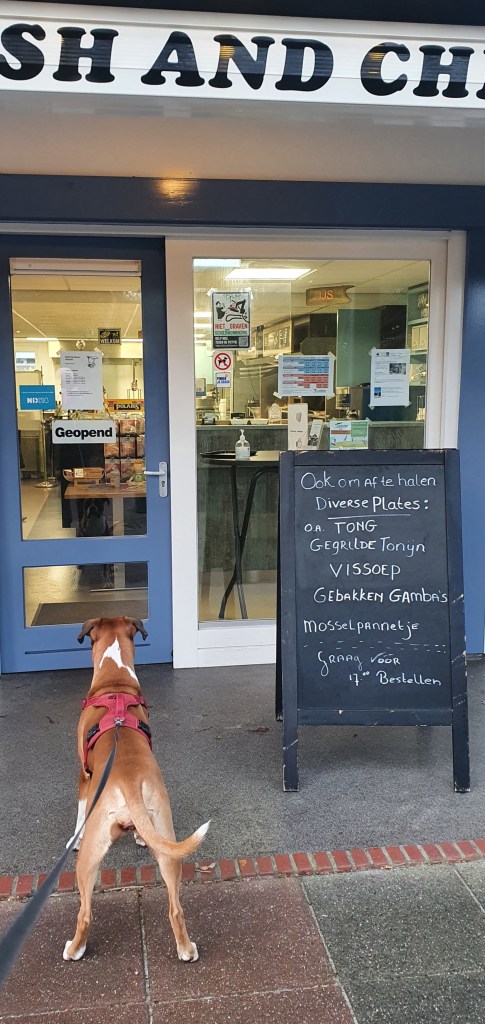 SH AND CH
IJS
NIET DRAVEN
WELKOM
Geopend
Ook om af te halen
Diverse Plates:
o.a. TONG
GEGRILDE Tonijn
VISSOEP
GEBAKKEN GAMBA'S
MOSSELPANNETJE
GRAAG VOOR
17.00 Bestellen